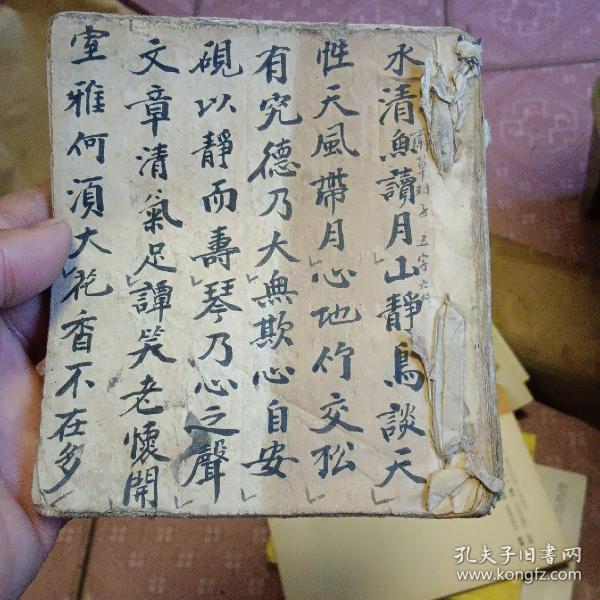 水清魚讀月山靜鳥談天
性天風帶月心地竹交松
有究德乃大無欺心自安
硯以靜而壽琴乃心之聲
文章清氣足譚笑老懷開
室雅何須大花香不在多
五字
孔夫子旧书网
www.kongfz.com